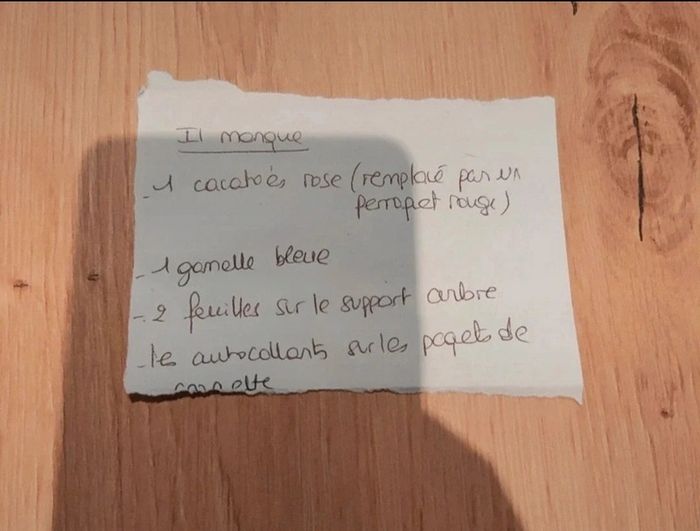 Il manque
- 1 cacatoès rose (remplacé par un
perroquet rouge)
- 1 gamelle bleue
- 2 feuilles sur le support arbre
- les autocollants sur les paquets de